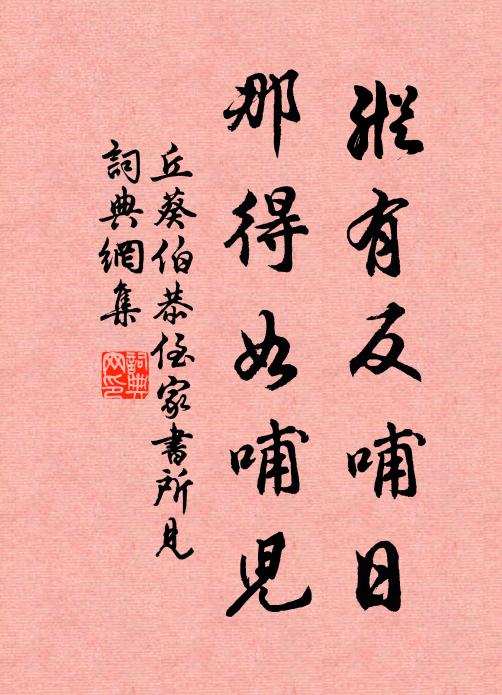 縱有反哺日
那得如哺兒
丘葵伯恭侄家書所見
詞典網集
詞典
网印